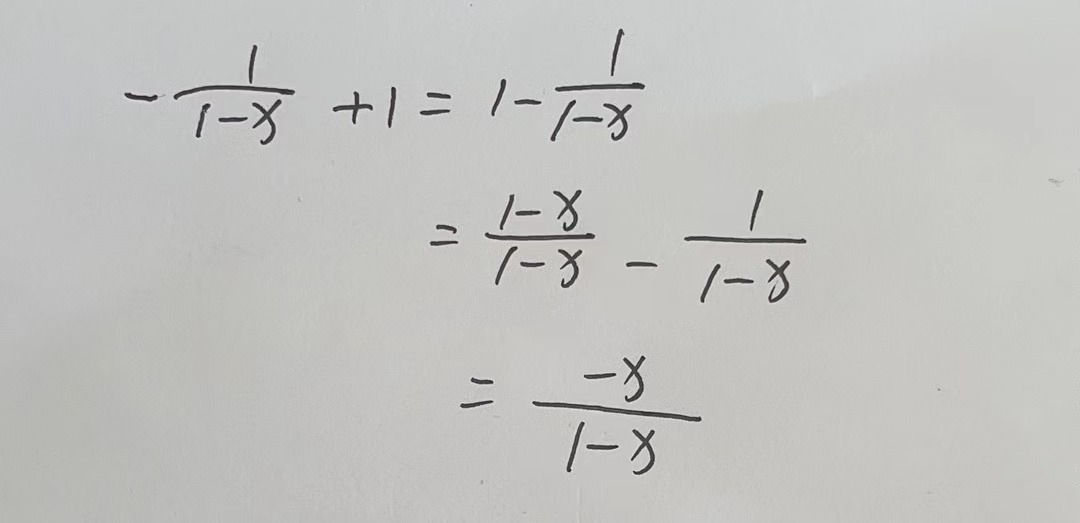 -\frac{1}{1-x} +1 = 1-\frac{1}{1-x}
= \frac{1-x}{1-x} - \frac{1}{1-x}
= \frac{-x}{1-x}